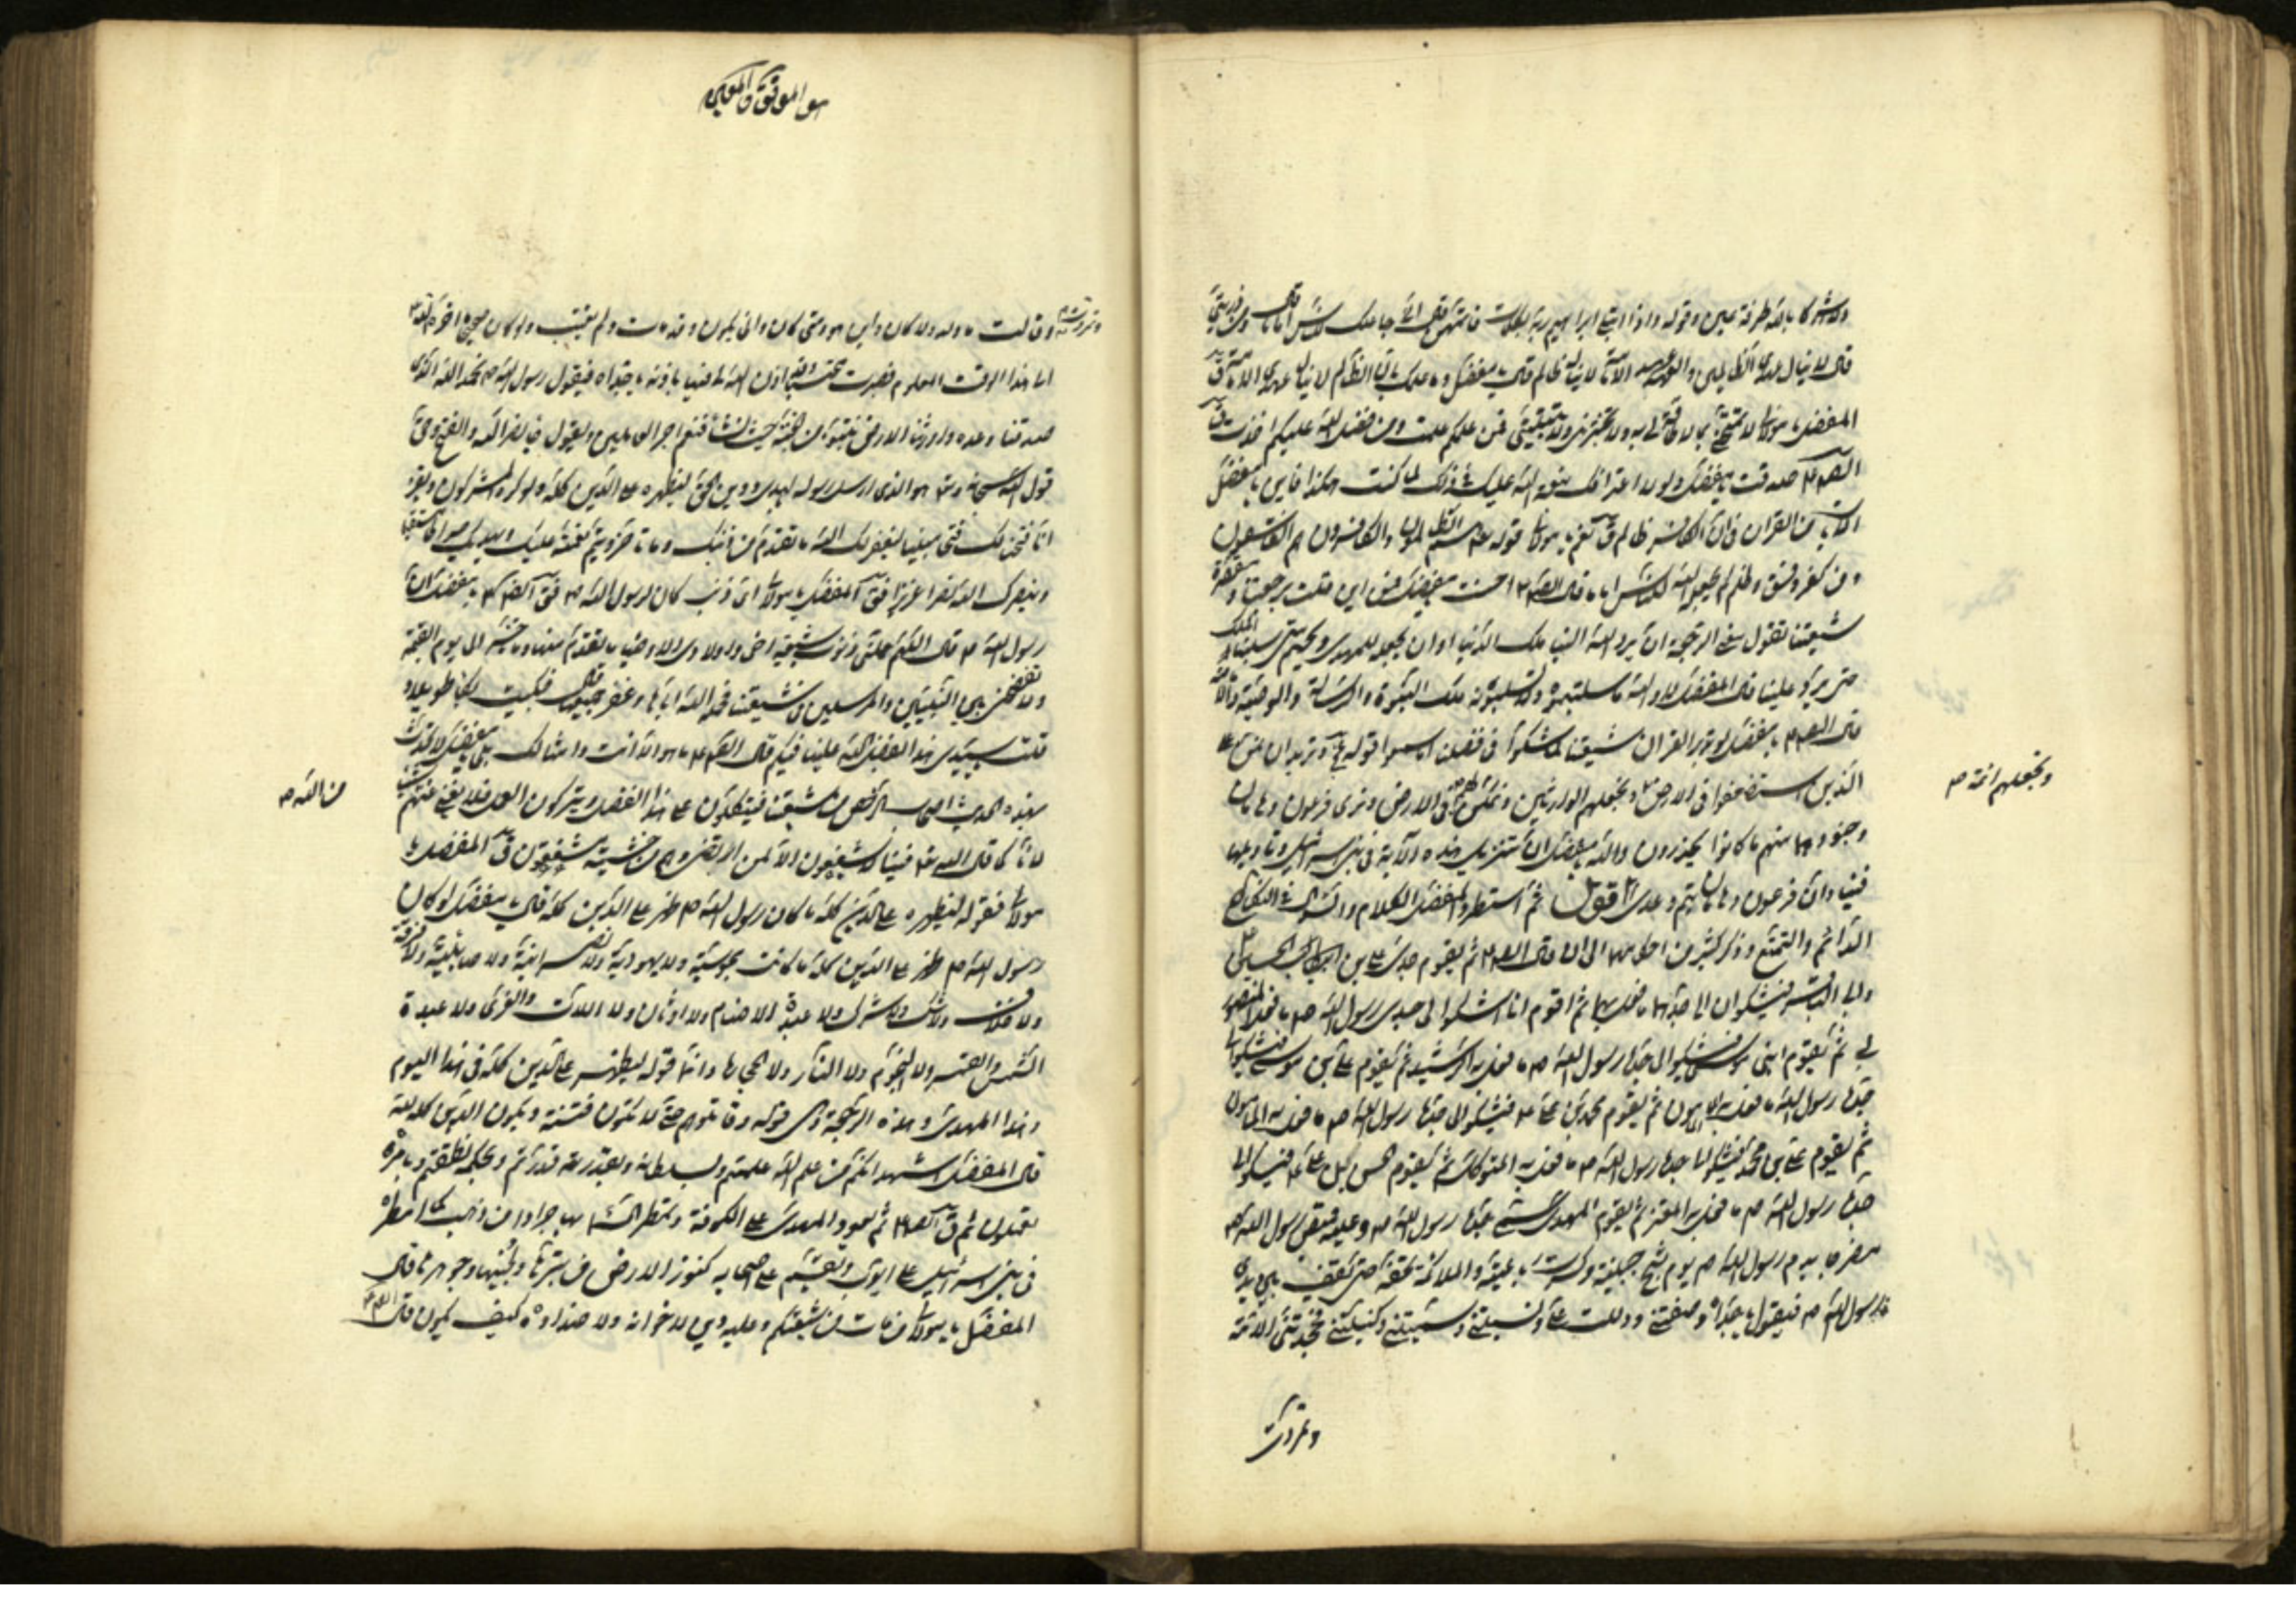 ولا اشركا بالله طرفة عين وقوله واذا ابتلى ابراهيم ربه بكلمات فاتمهن قال انى جاعلك للناس اماما قال ومن ذريتى
قال لا ينال عهدى الظالمين والعهد عهد الامامة لا يناله ظالم قال يا مفضل وما علمك بان الظالم لا ينال عهد الامامة قال
المفضل يا مولاى لا تمتحنى بما لا طاقة لى به ولا تختبرنى ولا تبتلينى فمن علمكم علمت ومن فضل الله عليكم اخذت قال
الصادق ع صدقت يا مفضل ولولا اعترافك بنعمة الله عليك فى ذلك لما كنت هكذا فاين يا مفضل
الآيات من القرآن فى ان الكافر ظالم قال نعم يا مولاى قوله تعالى والكافرون هم الظالمون والكافرون هم الفاسقون
ومن كفر وفسق وظلم لم يجعله الله للناس اماما قال الصادق ع احسنت يا مفضل فمن اين قلت برجعتنا ومقصرة
شيعتنا تقول معنى الرجعة ان يرد الله الينا ملك الدنيا وان يجعله للمهدى ويحهم متى سلبنا الملك
حتى يرد علينا قال المفضل لا والله ما سلبتموه ولا تسلبونه لانه ملك النبوة والرسالة والوصية والامامة
قال الصادق ع يا مفضل لو تدبر القرآن شيعتنا لما شكوا فى فضلنا اما سمعوا قوله عز وجل ونريد ان نمن على
الذين استضعفوا فى الارض ونجعلهم الوارثين ونمكن لهم فى الارض ونرى فرعون وهامان
ونجعلهم ائمة
وجنودهما منهم ما كانوا يحذرون والله يا مفضل ان تنزيل هذه الآية فى بنى اسرائيل وتاويلها
فينا وان فرعون وهامان تيم وعدى اقول ثم استطرد المفضل الكلام والسؤال فى النكاح
الدائم والتمتع وذكر كثير من احكامهما الى ان قال الصادق ع ثم يقوم جدى على بن الحسين
وابى الباقر فيشكوان الى جدهما ما فعل بهما ثم اقوم انا اشكو الى جدى رسول الله ص ما فعل المنصور
بى ثم يقوم ابنى موسى فيشكو الى جده رسول الله ص ما فعل به الرشيد ثم يقوم على بن موسى فيشكو الى
جده رسول الله ما فعل به المامون ثم يقوم محمد بن على ع فيشكو الى جده رسول الله ص ما فعل به المامون
ثم يقوم على بن محمد فيشكو الى جده رسول الله ص ما فعل به المتوكل ثم يقوم الحسن بن على ع فيشكو الى
جده رسول الله ص ما فعل به المعتز ثم يقوم المهدى سمى جده رسول الله ص وعليه قميص رسول الله ص
مضرجا بدم رسول الله ص يوم شج جبينه وكسرت رباعيته والملائكة تحفه حتى يقف بين يدى
جده رسول الله ص فيقول يا جداه وصفتنى ودللت على ونسبتنى وسميتنى وكنيتنى فجحدتنى الامة
وتمردت
هو الموفق والمعين
وتمردت وقالت ما ولد ولا كان واين هو ومتى كان وانى يكون وقد مات ولم يعقب ولو كان صحيحا ما اخره الله
الى هذا الوقت المعلوم فصبرت محتسبا وقد اذن الله لى فيها باذنه يا جداه فيقول رسول الله ص الحمد لله الذى
صدقنا وعده واورثنا الارض نتبوأ من الجنة حيث نشاء فنعم اجر العاملين ويقول جاء نصر الله والفتح وحق
قول الله سبحانه وتعالى هو الذى ارسل رسوله بالهدى ودين الحق ليظهره على الدين كله ولو كره المشركون ويقرأ
انا فتحنا لك فتحا مبينا ليغفر لك الله ما تقدم من ذنبك وما تأخر ويتم نعمته عليك ويهديك صراطا مستقيما
وينصرك الله نصرا عزيزا فقال المفضل يا مولاى اى ذنب كان لرسول الله ص فقال الصادق ع يا مفضل ان
رسول الله ص قال اللهم حملنى ذنوب شيعة اخى واولادى الاوصياء ما تقدم منها وما تأخر الى يوم القيمة
ولا تفضحنى بين النبيين والمرسلين من شيعتنا فحمله الله اياها وغفر جميعها قال المفضل فبكيت بكاء طويلا و
قلت يا سيدى هذا بفضل الله علينا فيكم قال الصادق ع يا مفضل ما هو الا انت وامثالك بلى يا مفضل لا تحدث
بهذا الحديث اصحاب الرخص من شيعتنا فيتكلون على هذا الفضل ويتركون العمل فلا يغنى عنهم شيئا
من الله
لانا كما قال الله تعالى فينا لا يشفعون الا لمن ارتضى وهم من خشيته مشفقون قال المفضل يا
مولاى فقوله ليظهره على الدين كله ما كان رسول الله ص ظهر على الدين كله قال يا مفضل لو كان
رسول الله ص ظهر على الدين كله ما كانت مجوسية ولا يهودية ولا نصرانية ولا صابئية ولا فرقة
ولا خلاف ولا شك ولا شرك ولا عبدة الاصنام ولا اوثان ولا اللات والعزى ولا عبدة
الشمس والقمر ولا النجوم ولا النار ولا الحجارة وانما قوله ليظهره على الدين كله فى هذا اليوم
وهذا المهدى وهذه الرجعة وهى قوله وقاتلوهم حتى لا تكون فتنة ويكون الدين كله لله
قال المفضل اشهد انكم من علم الله علمتم وبسلطانه وبقدرته قدرتم وبحكمه نطقتم وبامره
تعملون ثم قال الصادق ع ثم يعود المهدى الى الكوفة وتمطر السماء بها جرادا من ذهب كما امطره
فى بنى اسرائيل على ايوب ويقسم على اصحابه كنوز الارض من تبرها ولجينها وجوهرها قال
المفضل يا مولاى من مات من شيعتكم وعليه دين لاخوانه ولاضداده كيف يكون قال الصادق ع